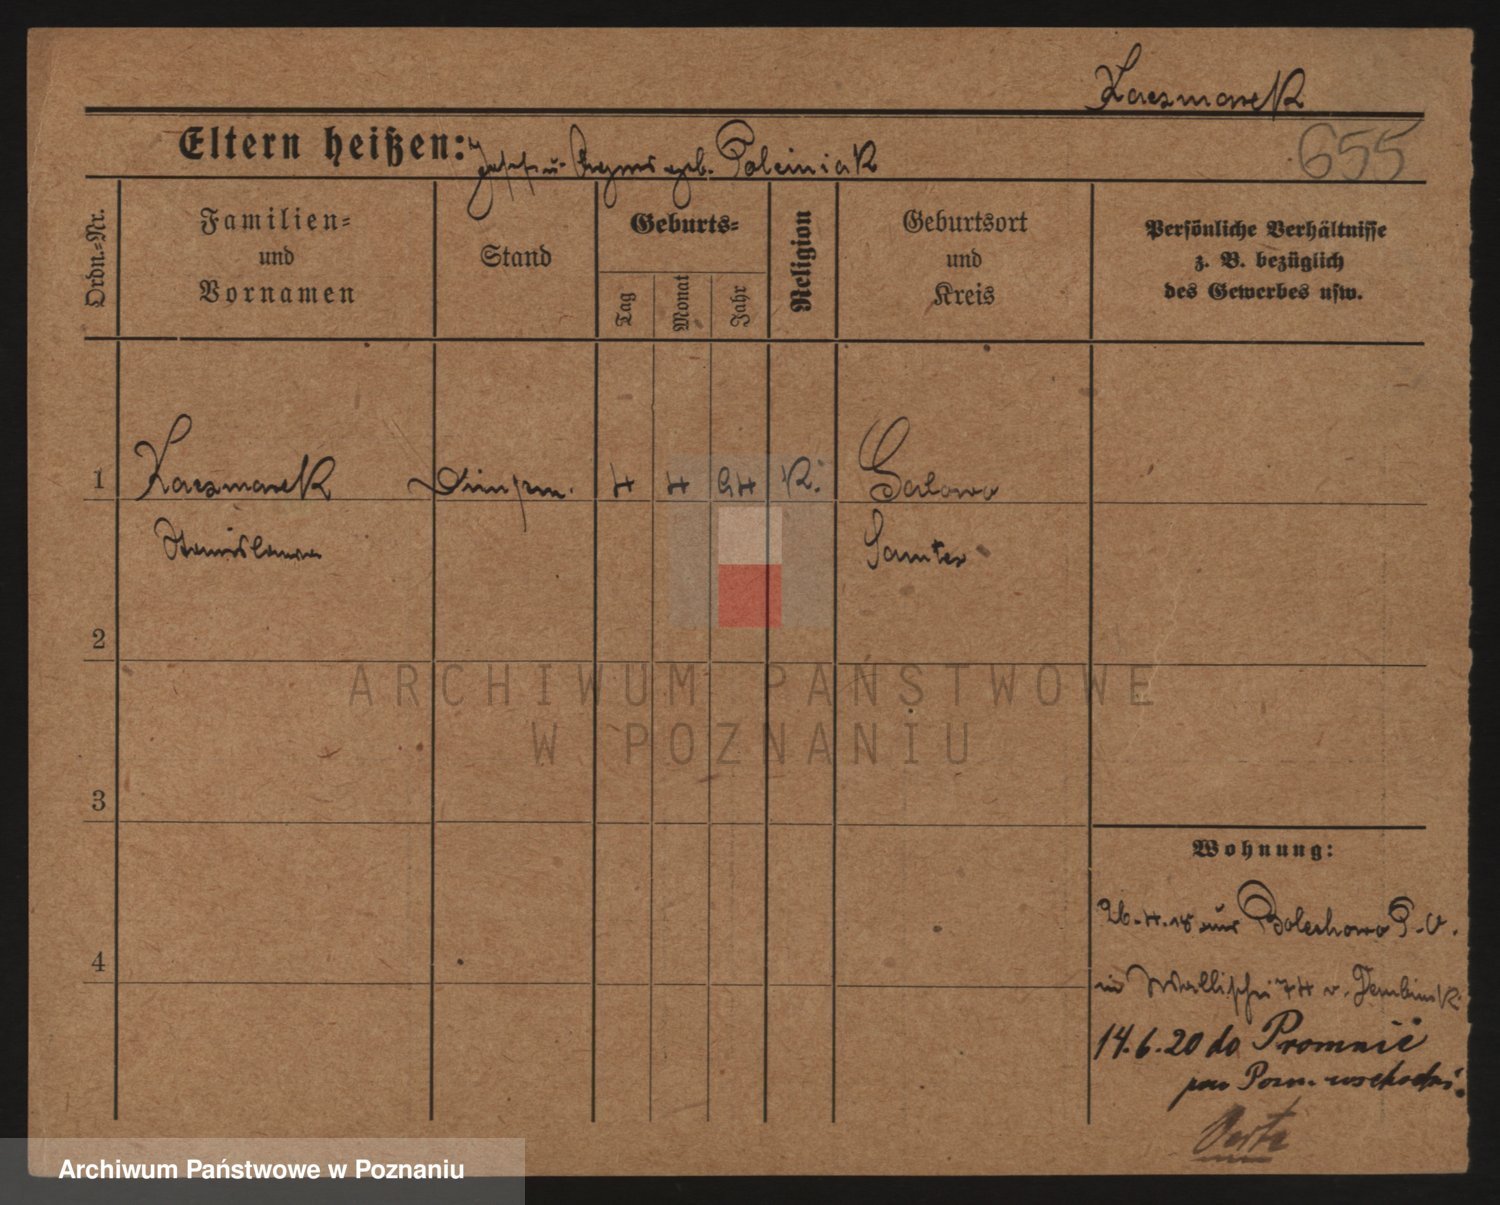 Kaczmarek
655
Eltern heißen: Josef u. Agnes geb. Polciniak
Ordn.-Nr.
Familien-
und
Vornamen
Stand
Geburts-
Tag
Monat
Jahr
Religion
Geburtsort
und
Kreis
Persönliche Verhältnisse
z. B. bezüglich
des Gewerbes usw.
1 Kaczmarek 4 4 94 K. Galowo
Stanislawa Samter
2
ARCHIWUM PAŃSTWOWE
W POZNANIU
3
Wohnung:
26.4.18 aus Bolechowo P.O.
4
in Wallischei 74 v.
14.6.20 do Promnic
pow Pozn. wschodni.
Archiwum Państwowe w Poznaniu